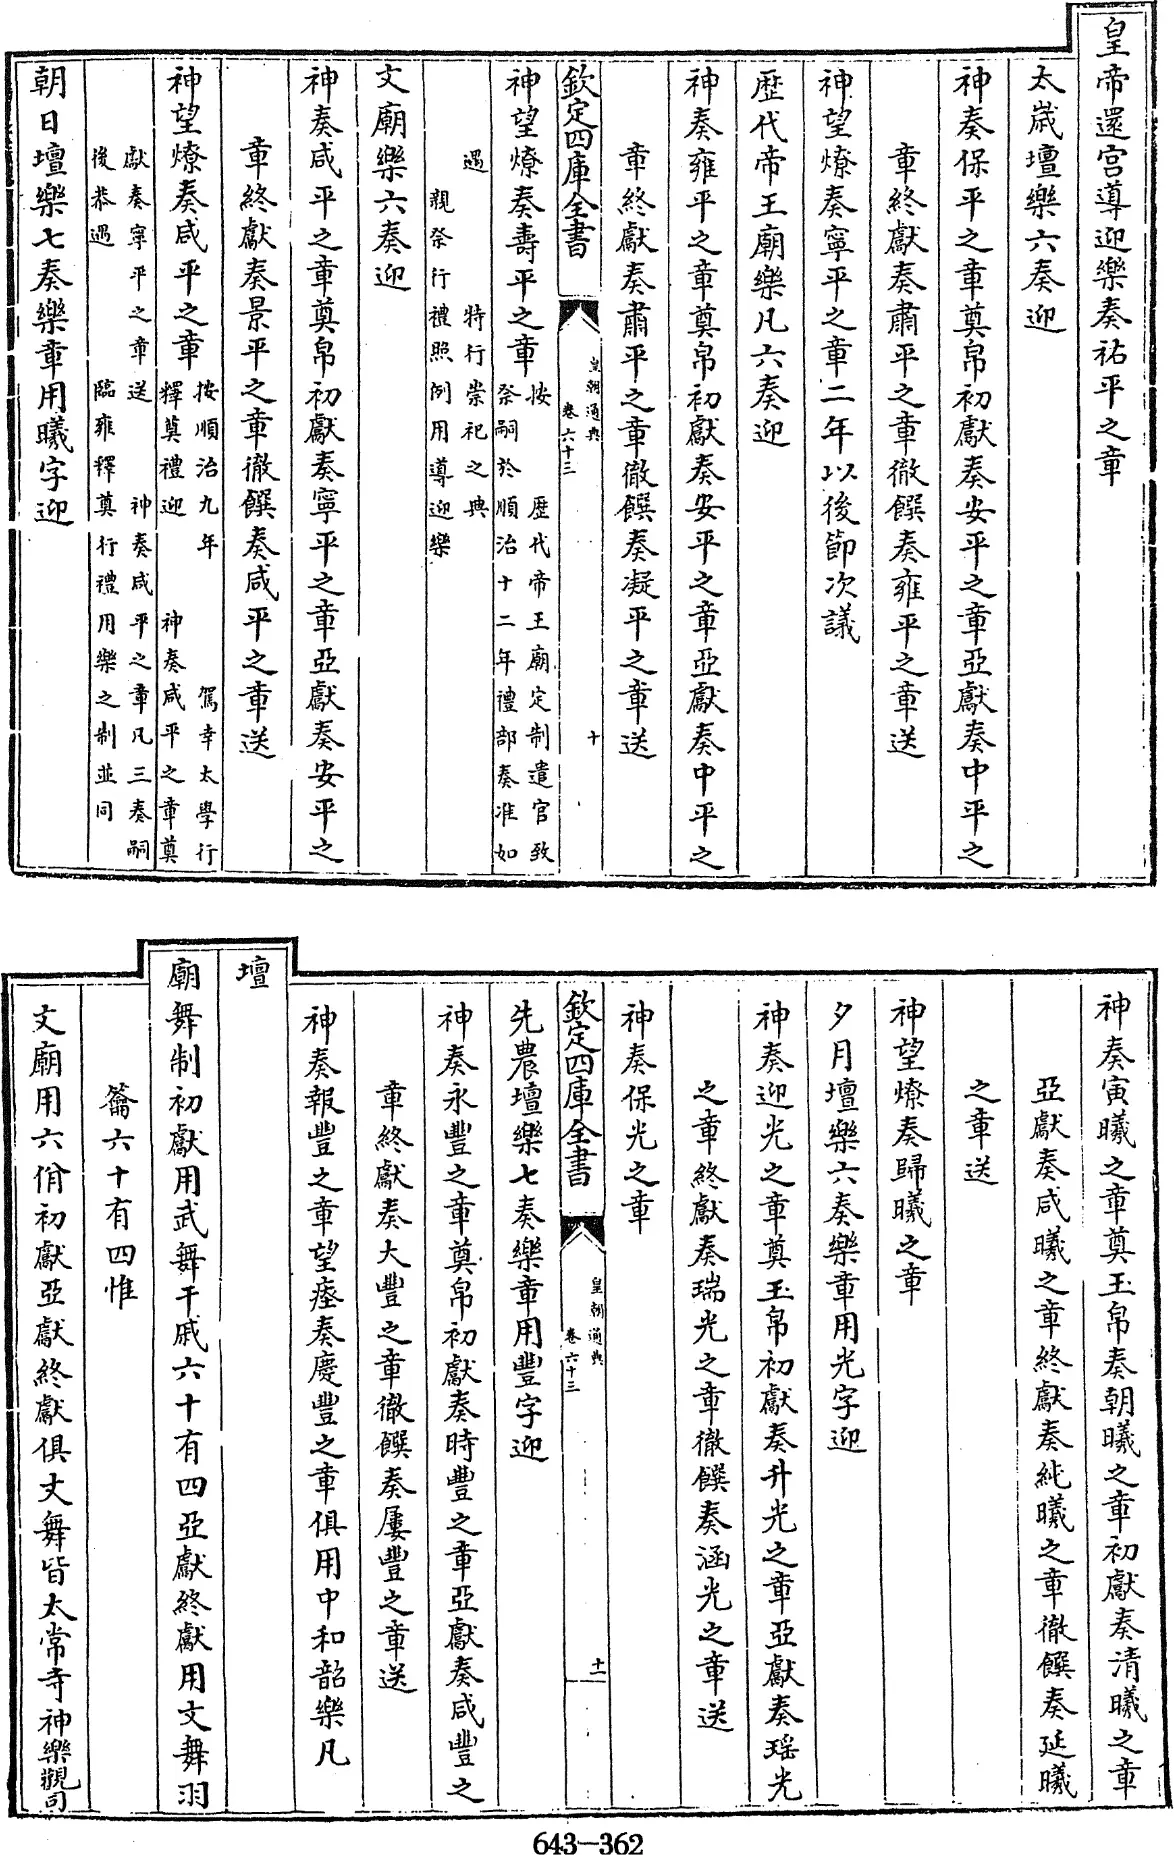 皇帝還宮導迎樂奏祐平之章
太歲壇樂六奏迎
神奏保平之章奠帛初獻奏安平之章亞獻奏中平之
章終獻奏肅平之章徹饌奏雍平之章送
神望燎奏寧平之章二年以後節次議
歷代帝王廟樂凡六奏迎
神奏雍平之章奠帛初獻奏安平之章亞獻奏中平之
章終獻奏肅平之章徹饌奏凝平之章送
欽定四庫全書
皇朝通典
卷六十三
十
神望燎奏壽平之章
按 歷代帝王廟定制遣官致
祭嗣於順治十二年禮部奏准如
遇 特行崇祀之典
親祭行禮照例用導迎樂
文廟樂六奏迎
神奏咸平之章奠帛初獻奏寧平之章亞獻奏安平之
章終獻奏景平之章徹饌奏咸平之章送
神望燎奏咸平之章
按順治九年 駕幸太學行
釋奠禮迎 神奏咸平之章奠
獻奏寧平之章送 神奏咸平之章凡三奏嗣
後恭遇 臨雍釋奠行禮用樂之制並同
朝日壇樂七奏樂章用曦字迎
神奏寅曦之章奠玉帛奏朝曦之章初獻奏清曦之章
亞獻奏咸曦之章終獻奏純曦之章徹饌奏延曦
之章送
神望燎奏歸曦之章
夕月壇樂六奏樂章用光字迎
神奏迎光之章奠玉帛初獻奏升光之章亞獻奏瑶光
之章終獻奏瑞光之章徹饌奏涵光之章送
神奏保光之章
欽定四庫全書
皇朝通典
卷六十三
十一
先農壇樂七奏樂章用豐字迎
神奏永豐之章奠帛初獻奏時豐之章亞獻奏咸豐之
章終獻奏大豐之章徹饌奏屢豐之章送
神奏報豐之章望瘞奏慶豐之章俱用中和韶樂凡
壇
廟舞制初獻用武舞干戚六十有四亞獻終獻用文舞羽
籥六十有四惟
文廟用六佾初獻亞獻終獻俱文舞皆太常寺神樂觀司
643-362